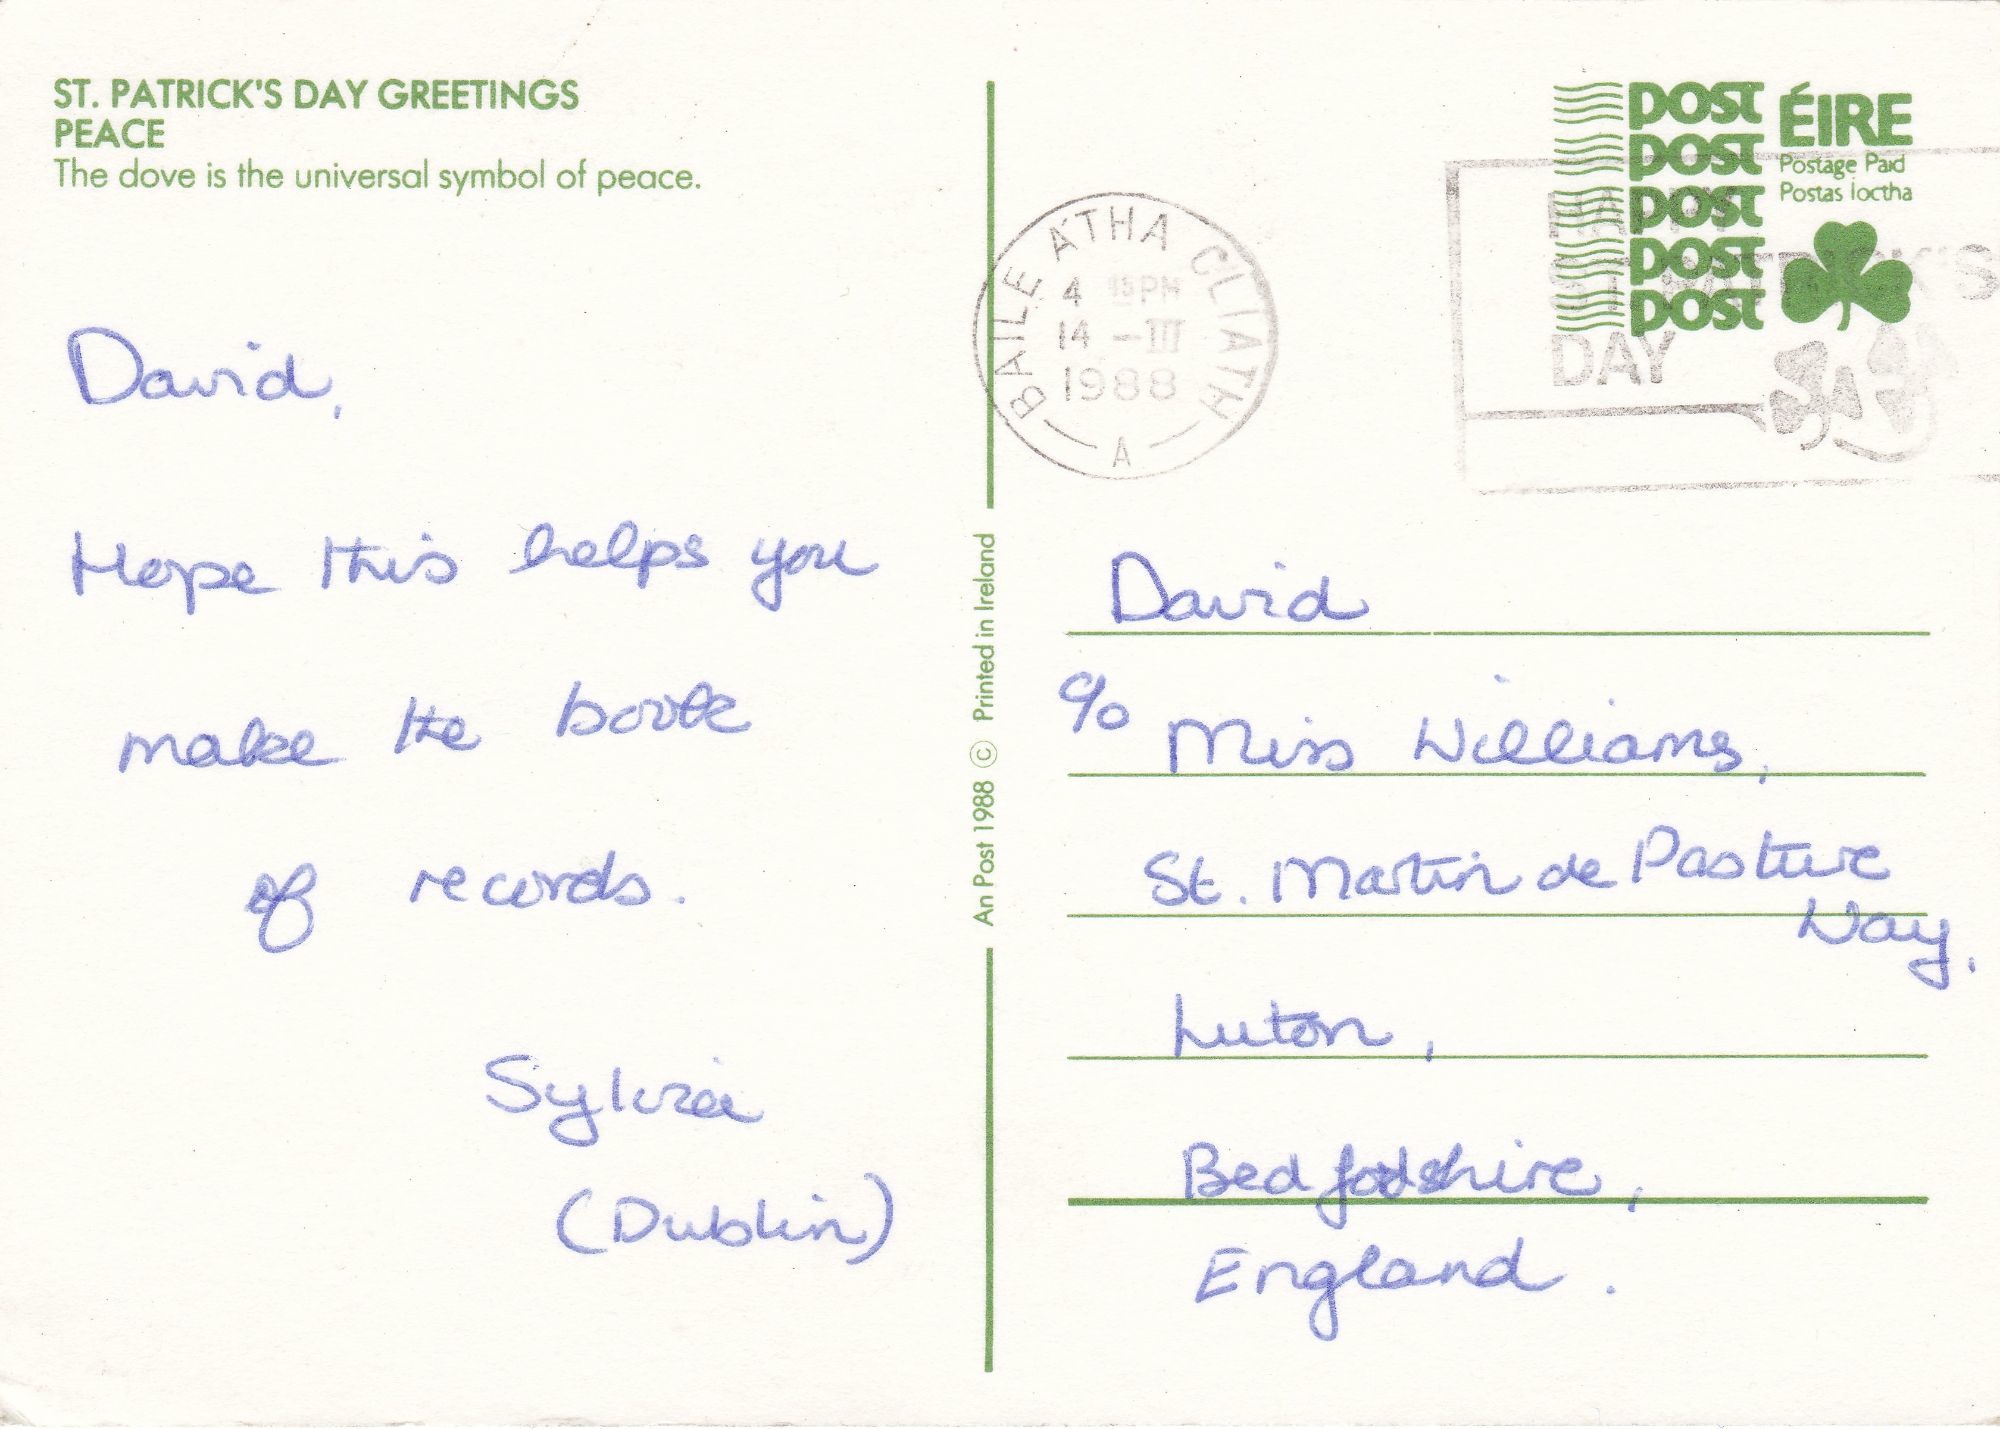 ST. PATRICK'S DAY GREETINGS
PEACE
The dove is the universal symbol of peace.
David,
Hope this helps you
make the book
of records.
Sylvia
(Dublin)
An Post 1988 © Printed in Ireland
BAILE ÁTHA CLIATH
4 15PM
14 -III
1988
A
post
post
post
post
post
ÉIRE
Postage Paid
Postas Íoctha
HAPPY
ST PATRICK'S
DAY
David
c/o Miss Williams,
St. Martin de Pasture
Way,
Luton,
Bedfodshire,
England.